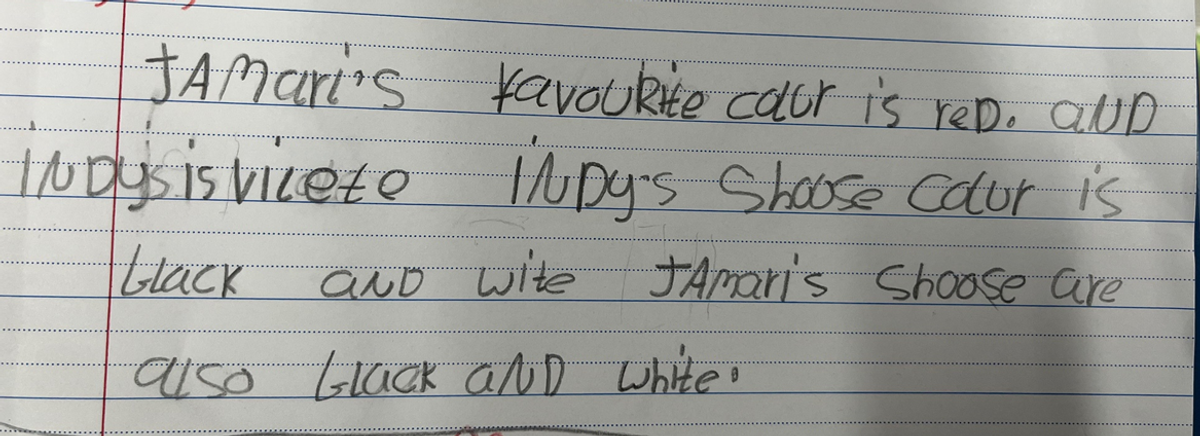 JAMari's favoukite colur is reD. aND
iNDy's is vilete iNDy's Shoose Colur is
black aND wite JAmari's Shoose are
also black aND white.